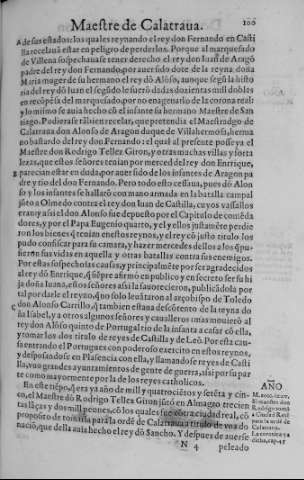 Maestre de Calatraua. 100
A de sus estados: los quales reynando el rey don Fernando en Casti
lla recelaua estar en peligro de perderlos. Porque al marquesado
de Villena sospechaua se tener derecho el rey don Iuan de Aragō
padre del rey don Fernando, por auer sido dote de la reyna doña
Maria muger de su hermano el rey dō Alōso, aunque segū la histo
ria del rey dō Iuan el segūdo le fuerō dadas dozientas mil doblas
en recōpēsa del marquesado, por no enagenarlo de la corona real:
y lo mismo se auia hecho cō el infante su hermano Maestre de San
tiago. Podiera se tābien recelar, que pretendia el Maestradgo de
Calatraua don Alonso de Aragon duque de Villahermosa, herma
no bastardo del rey don Fernando: el qual al presente posseya el
Maestre don Rodrigo Tellez Giron, y otras muchas villas y forta
lezas, que estos señores tenian por merced del rey don Enrrique,
B parecian estar en duda, por auer sido de los infantes de Aragon pa
dre y tio del don Fernando. Pero todo esto cessaua, pues dō Alon
so y los infantes se hallarō con mano armada en la batalla campal
jūto a Olmedo contra el rey don Iuan de Castilla, cuyos vassallos
eran: y assi el don Alonso fue depuesto por el Capitulo de comēda
dores, y por el Papa Eugenio quarto, y el y ellos justamēte perdie
ron los bienes q̄ tenian en estos reynos, y el rey cō justo titulo los
pudo confiscar para su camara, y hazer mercedes dellos a los q̄ pu
sieron sus vidas en aquella y otras batallas contra sus enemigos.
Por estas sospechosas causas, y principalmēte por ser agradecidos
al rey dō Enrrique, q̄ siēpre afirmo en publico y en secreto ser su hi
ja doña Iuana, estos señores assi la fauorecieron, publicādola por
tal por darle el reyno, q̄ no solo leuātaron al arçobispo de Toledo
don Alonso Carrillo, q̄ tambien estaua descōtento de la reyna do
ña Isabel, y a otros algunos señores y caualleros mas mouierō al
rey don Alōso quinto de Portugal tio de la infanta a casar cō ella,
y tomar los dos titulo de reyes de Castilla y de Leō. Por esta cau
sa entrando el Portugues con poderoso exercito en estos reynos,
y desposandose en Plasencia con ella, y llamandose reyes de Casti
lla, vuo grandes ayuntamientos de gente de guerra, assi por su par
te como mayormente por la de los reyes catholicos.
En este tiēpo, q̄ era ya año de mill y quatrociētos y setēta y cin-
co, el Maestre dō Rodrigo Tellez Giron jūtō en Almagro trecien
tas lāças y dos mil peones, cō los quales fue cōtra ciudad real, cō
proposito de tomarla para la ordē de Calatraua a titulo de vna do
nació, que della auia hecho el rey dō Sancho. Y despues de auerse
N 4 peleado
AÑO
M. cccc. lxxv.
El maestre don
Rodrigo toma
a Ciudad Real
para la ordē de
Calatraua.